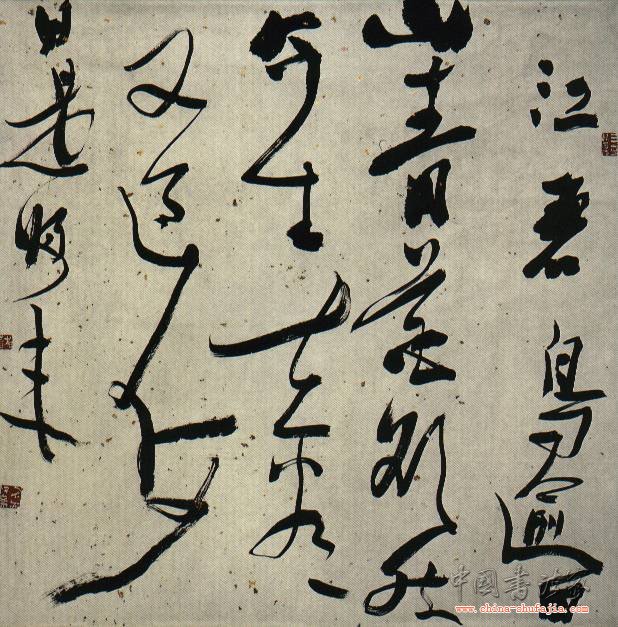 江碧鳥逾白
山青花欲然
今春看
又過何
日是歸年
中國書法家
www.china-shufajia.com